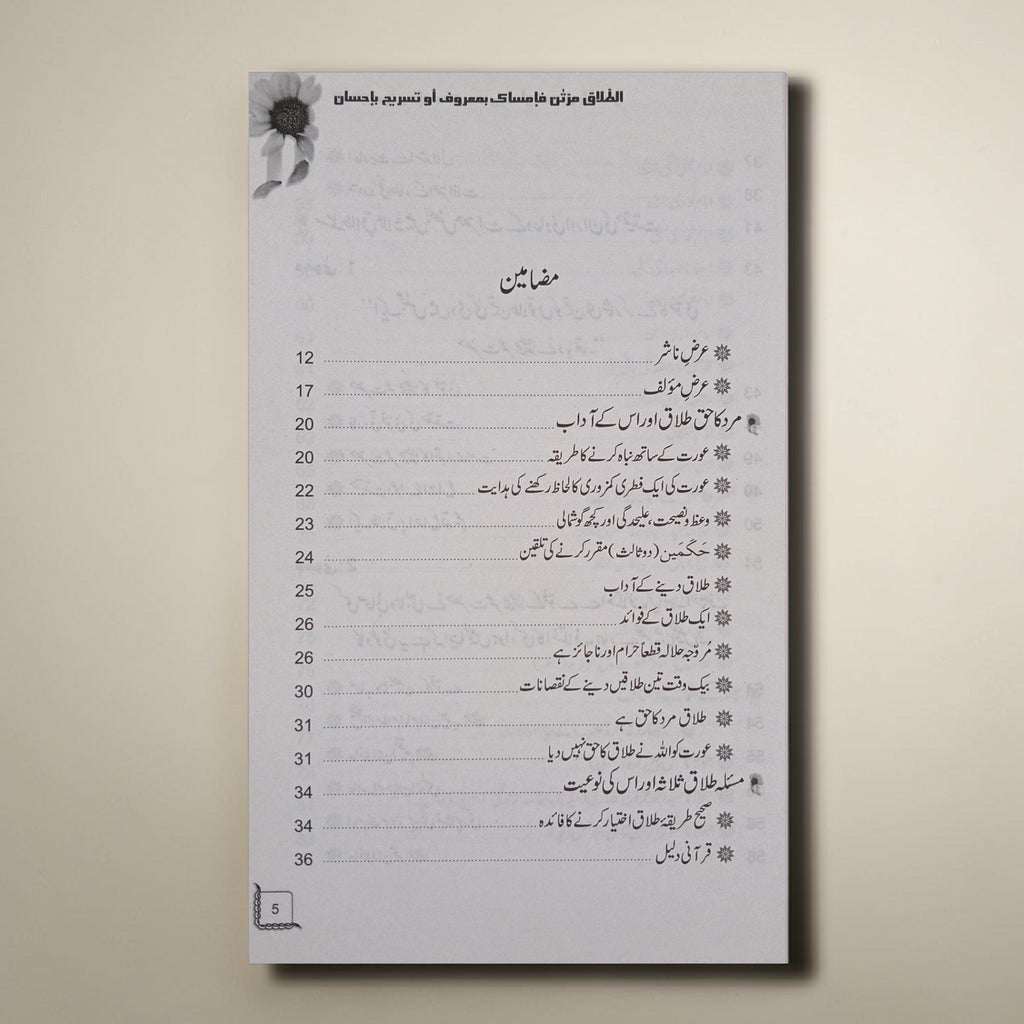 الطلاق مرتٰن فإمساك بمعروف أو تسريح بإحسان
مضامین
عرضِ ناشر 12
عرضِ مؤلف 17
مرد کا حق طلاق اور اس کے آداب 20
عورت کے ساتھ نباہ کرنے کا طریقہ 20
عورت کی ایک فطری کمزوری کا لحاظ رکھنے کی ہدایت 22
وعظ و نصیحت، علیحدگی اور کچھ گوشمالی 23
حَكَمَين (دو ثالث) مقرر کرنے کی تلقین 24
طلاق دینے کے آداب 25
ایک طلاق کے فوائد 26
مُروّجہ حلالہ قطعاً حرام اور ناجائز ہے 26
بیک وقت تین طلاقیں دینے کے نقصانات 30
طلاق مرد کا حق ہے 31
عورت کو اللہ نے طلاق کا حق نہیں دیا 31
مسئلہ طلاق ثلاثہ اور اس کی نوعیت 34
صحیح طریقۂ طلاق اختیار کرنے کا فائدہ 34
قرآنی دلیل 36
5